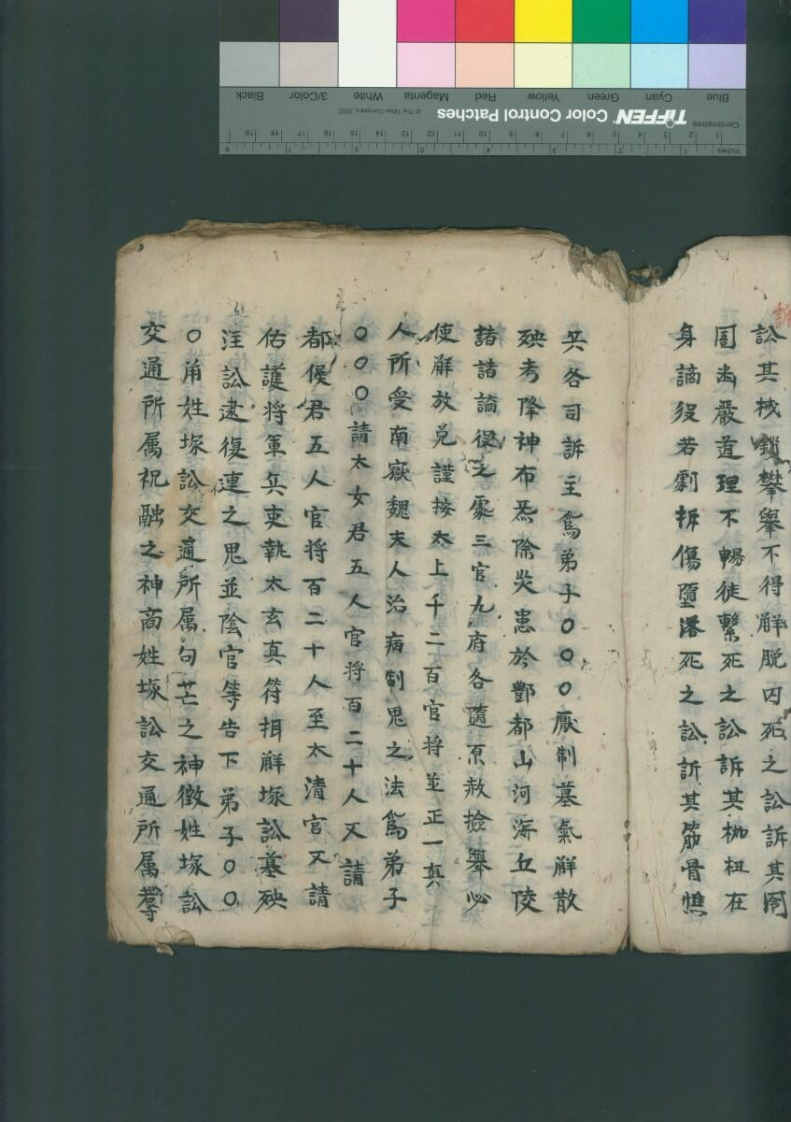 訟其械鎖攀舉不得觧脫囚死之訟訴其
囹圄嚴道理不暢徒繫死之訟訴其枷杻在
身謫役若劇拆傷墮落死之訟訴其筋骨憔
兵各司訴主為弟子〇〇〇厭制墓氣觧散
殃考降神布炁除災患於酆都山河海丘陵
諸謫役之處三官九府各隨原赦撿舉必
使觧放兑謹按太上千二百官將並正一真
人所受南嶽魏夫人治病制鬼之法為弟子
〇〇〇請太女君五人官将百二十人又請
都侯君五人官将百二十人至太清官又請
佑護将軍兵吏執太玄真符揖觧塚訟墓殃
注訟逮復連之鬼並陰官等告下弟子〇〇
〇角姓塚訟交通所属句芒之神徵姓塚訟
交通所属祝融之神商姓塚訟交通所属蓐
Blue
Cyan
Green
Yellow
Red
Magenta
White
3/Color
Black
TIFFEN Color Control Patches
© The Tiffen Company, 2007
Centimetres
1 2 3 4 5 6 7 8 9 10 11 12 13 14 15 16 17 18 19
Inches
1 2 3 4 5 6 7 8